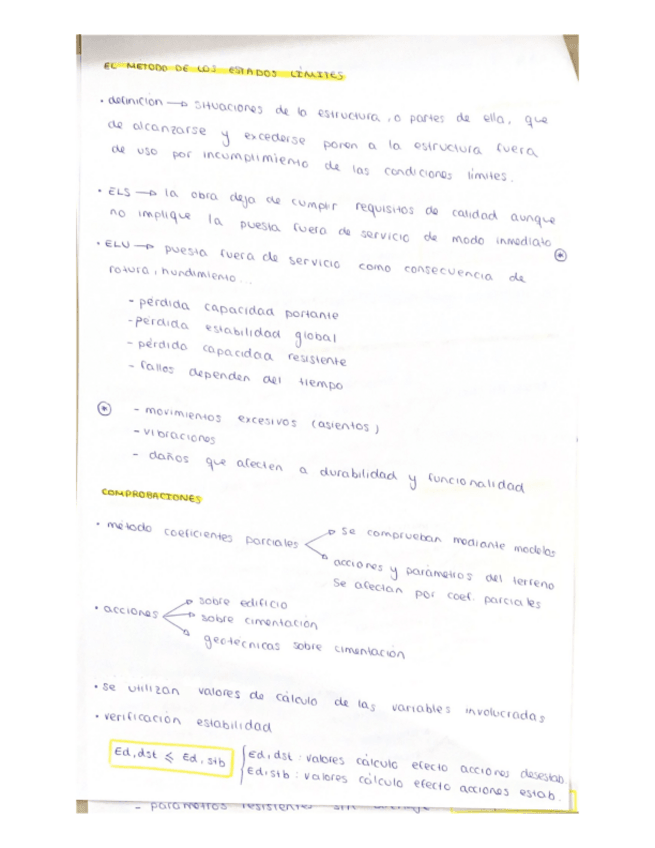 EL METODO DE LOS ESTADOS LÍMITES
• definición → situaciones de la estructura, o partes de ella, que
de alcanzarse y excederse ponen a la estructura fuera
de uso por incumplimiento de las condiciones límites.
• ELS → la obra deja de cumplir requisitos de calidad aunque
no implique la puesta fuera de servicio de modo inmediato *
• ELU → puesta fuera de servicio como consecuencia de
rotura, hundimiento...
- pérdida capacidad portante
- pérdida estabilidad global
- pérdida capacidad resistente
- fallos dependen del tiempo
* - movimientos excesivos (asientos)
- vibraciones
- daños que afecten a durabilidad y funcionalidad
COMPROBACIONES
• método coeficientes parciales
se comprueban mediante modelos
acciones y parámetros del terreno
se afectan por coef. parciales
• acciones
sobre edificio
sobre cimentación
geotécnicas sobre cimentación
• se utilizan valores de cálculo de las variables involucradas
• verificación estabilidad
Ed,dst ≤ Ed,stb
Ed,dst : valores cálculo efecto acciones desestab.
Ed,stb : valores cálculo efecto acciones estab.
- parámetros resistentes sin